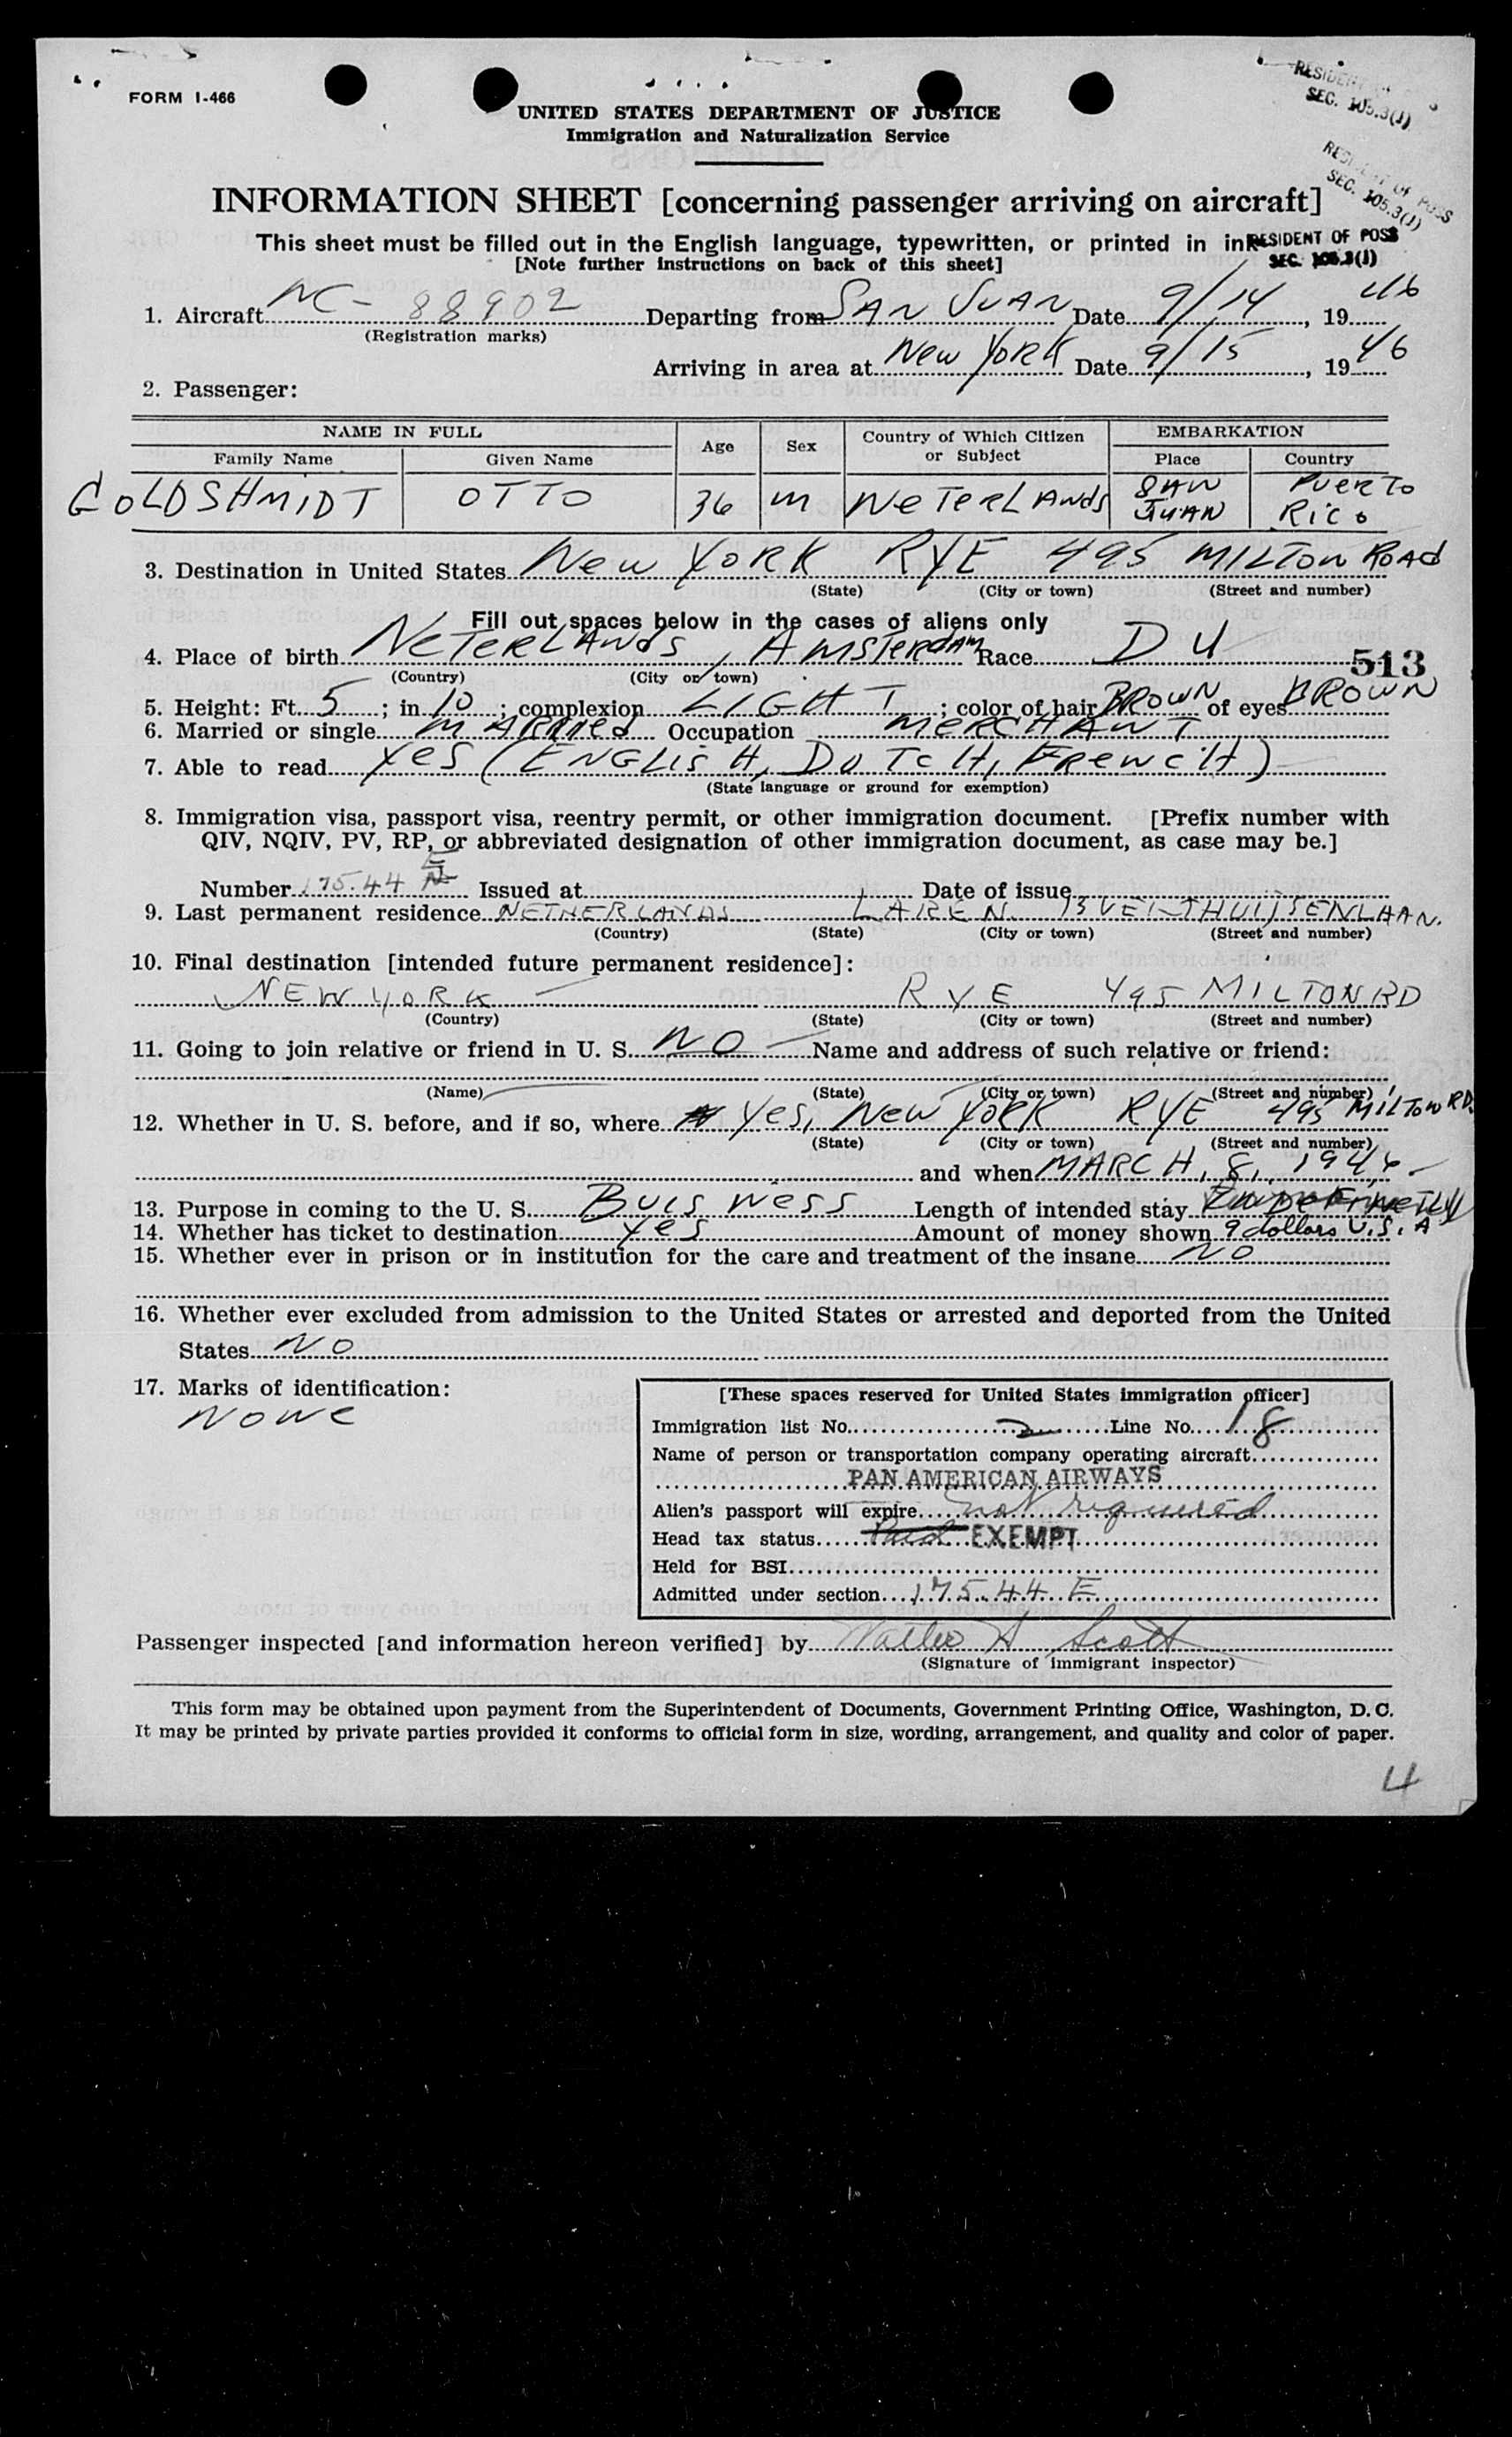 FORM I-466
UNITED STATES DEPARTMENT OF JUSTICE
Immigration and Naturalization Service
SEC. 105.3(J)
SEC. 105.3(J)
INFORMATION SHEET [concerning passenger arriving on aircraft]
This sheet must be filled out in the English language, typewritten, or printed in ink
RESIDENT OF POSS
SEC. 105.3(J)
[Note further instructions on back of this sheet]
1. Aircraft NC- 88902 Departing from SAN JUAN Date 9/14, 1946
(Registration marks)
Arriving in area at New York Date 9/15, 1946
2. Passenger:
NAME IN FULL Age Sex Country of Which Citizen or Subject EMBARKATION
Family Name Given Name Place Country
GOLDSHMIDT OTTO 36 m NeTerLAnds SAN JUAN Puerto Rico
3. Destination in United States New York RYE 495 MILTON ROAd
(State) (City or town) (Street and number)
Fill out spaces below in the cases of aliens only
4. Place of birth NeTerLAnds, AMSTerdam Race DU
513
(Country) (City or town)
5. Height: Ft. 5; in 10; complexion LIGHT; color of hair BROWN of eyes BROWN
6. Married or single MArried Occupation MERCHANT
7. Able to read Yes (ENGLisH, DuTcH, FrencH)
(State language or ground for exemption)
8. Immigration visa, passport visa, reentry permit, or other immigration document. [Prefix number with
QIV, NQIV, PV, RP, or abbreviated designation of other immigration document, as case may be.]
Number 175.44 E Issued at Date of issue
9. Last permanent residence NETHERLANDS LAREN. 13
(Country) (State) (City or town) (Street and number)
10. Final destination [intended future permanent residence]:
NEW YORK RYE 495 MILTON RD
(Country) (State) (City or town) (Street and number)
11. Going to join relative or friend in U. S. NO Name and address of such relative or friend:
(Name) (State) (City or town) (Street and number)
12. Whether in U. S. before, and if so, where Yes, New York RYE 495 MILTON RD.
(State) (City or town) (Street and number)
and when MARCH, 8, 1946
13. Purpose in coming to the U. S. Buisness Length of intended stay
14. Whether has ticket to destination Yes Amount of money shown 9 dollars U.S.A
15. Whether ever in prison or in institution for the care and treatment of the insane NO
16. Whether ever excluded from admission to the United States or arrested and deported from the United
States NO
17. Marks of identification:
None
[These spaces reserved for United States immigration officer]
Immigration list No. 2 Line No. 18
Name of person or transportation company operating aircraft
PAN AMERICAN AIRWAYS
Alien's passport will expire not required
Head tax status Paid EXEMPT
Held for BSI
Admitted under section 175.44 E
Passenger inspected [and information hereon verified] by Scott
(Signature of immigrant inspector)
This form may be obtained upon payment from the Superintendent of Documents, Government Printing Office, Washington, D. C.
It may be printed by private parties provided it conforms to official form in size, wording, arrangement, and quality and color of paper.
4